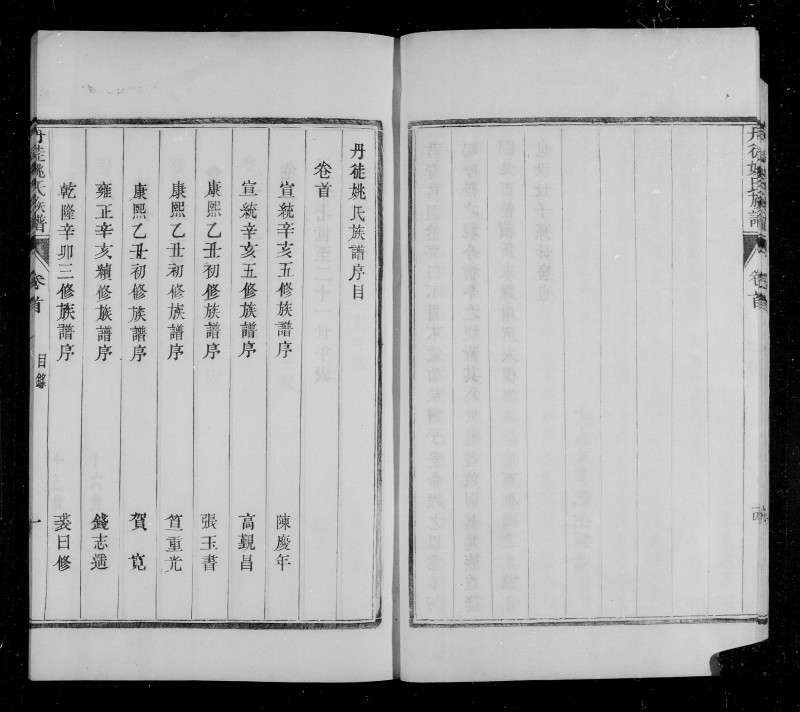 丹徒姚氏族譜
卷首
丹徒姚氏族譜序目
卷首
宣統辛亥五修族譜序 陳慶年
宣統辛亥五修族譜序 高覲昌
康熙乙丑初修族譜序 張玉書
康熙乙丑初修族譜序 笪重光
康熙乙丑初修族譜序 賀寬
雍正辛亥續修族譜序 錢志遥
乾隆辛卯三修族譜序 裘曰修
丹徒姚氏族譜
卷首
目錄
一